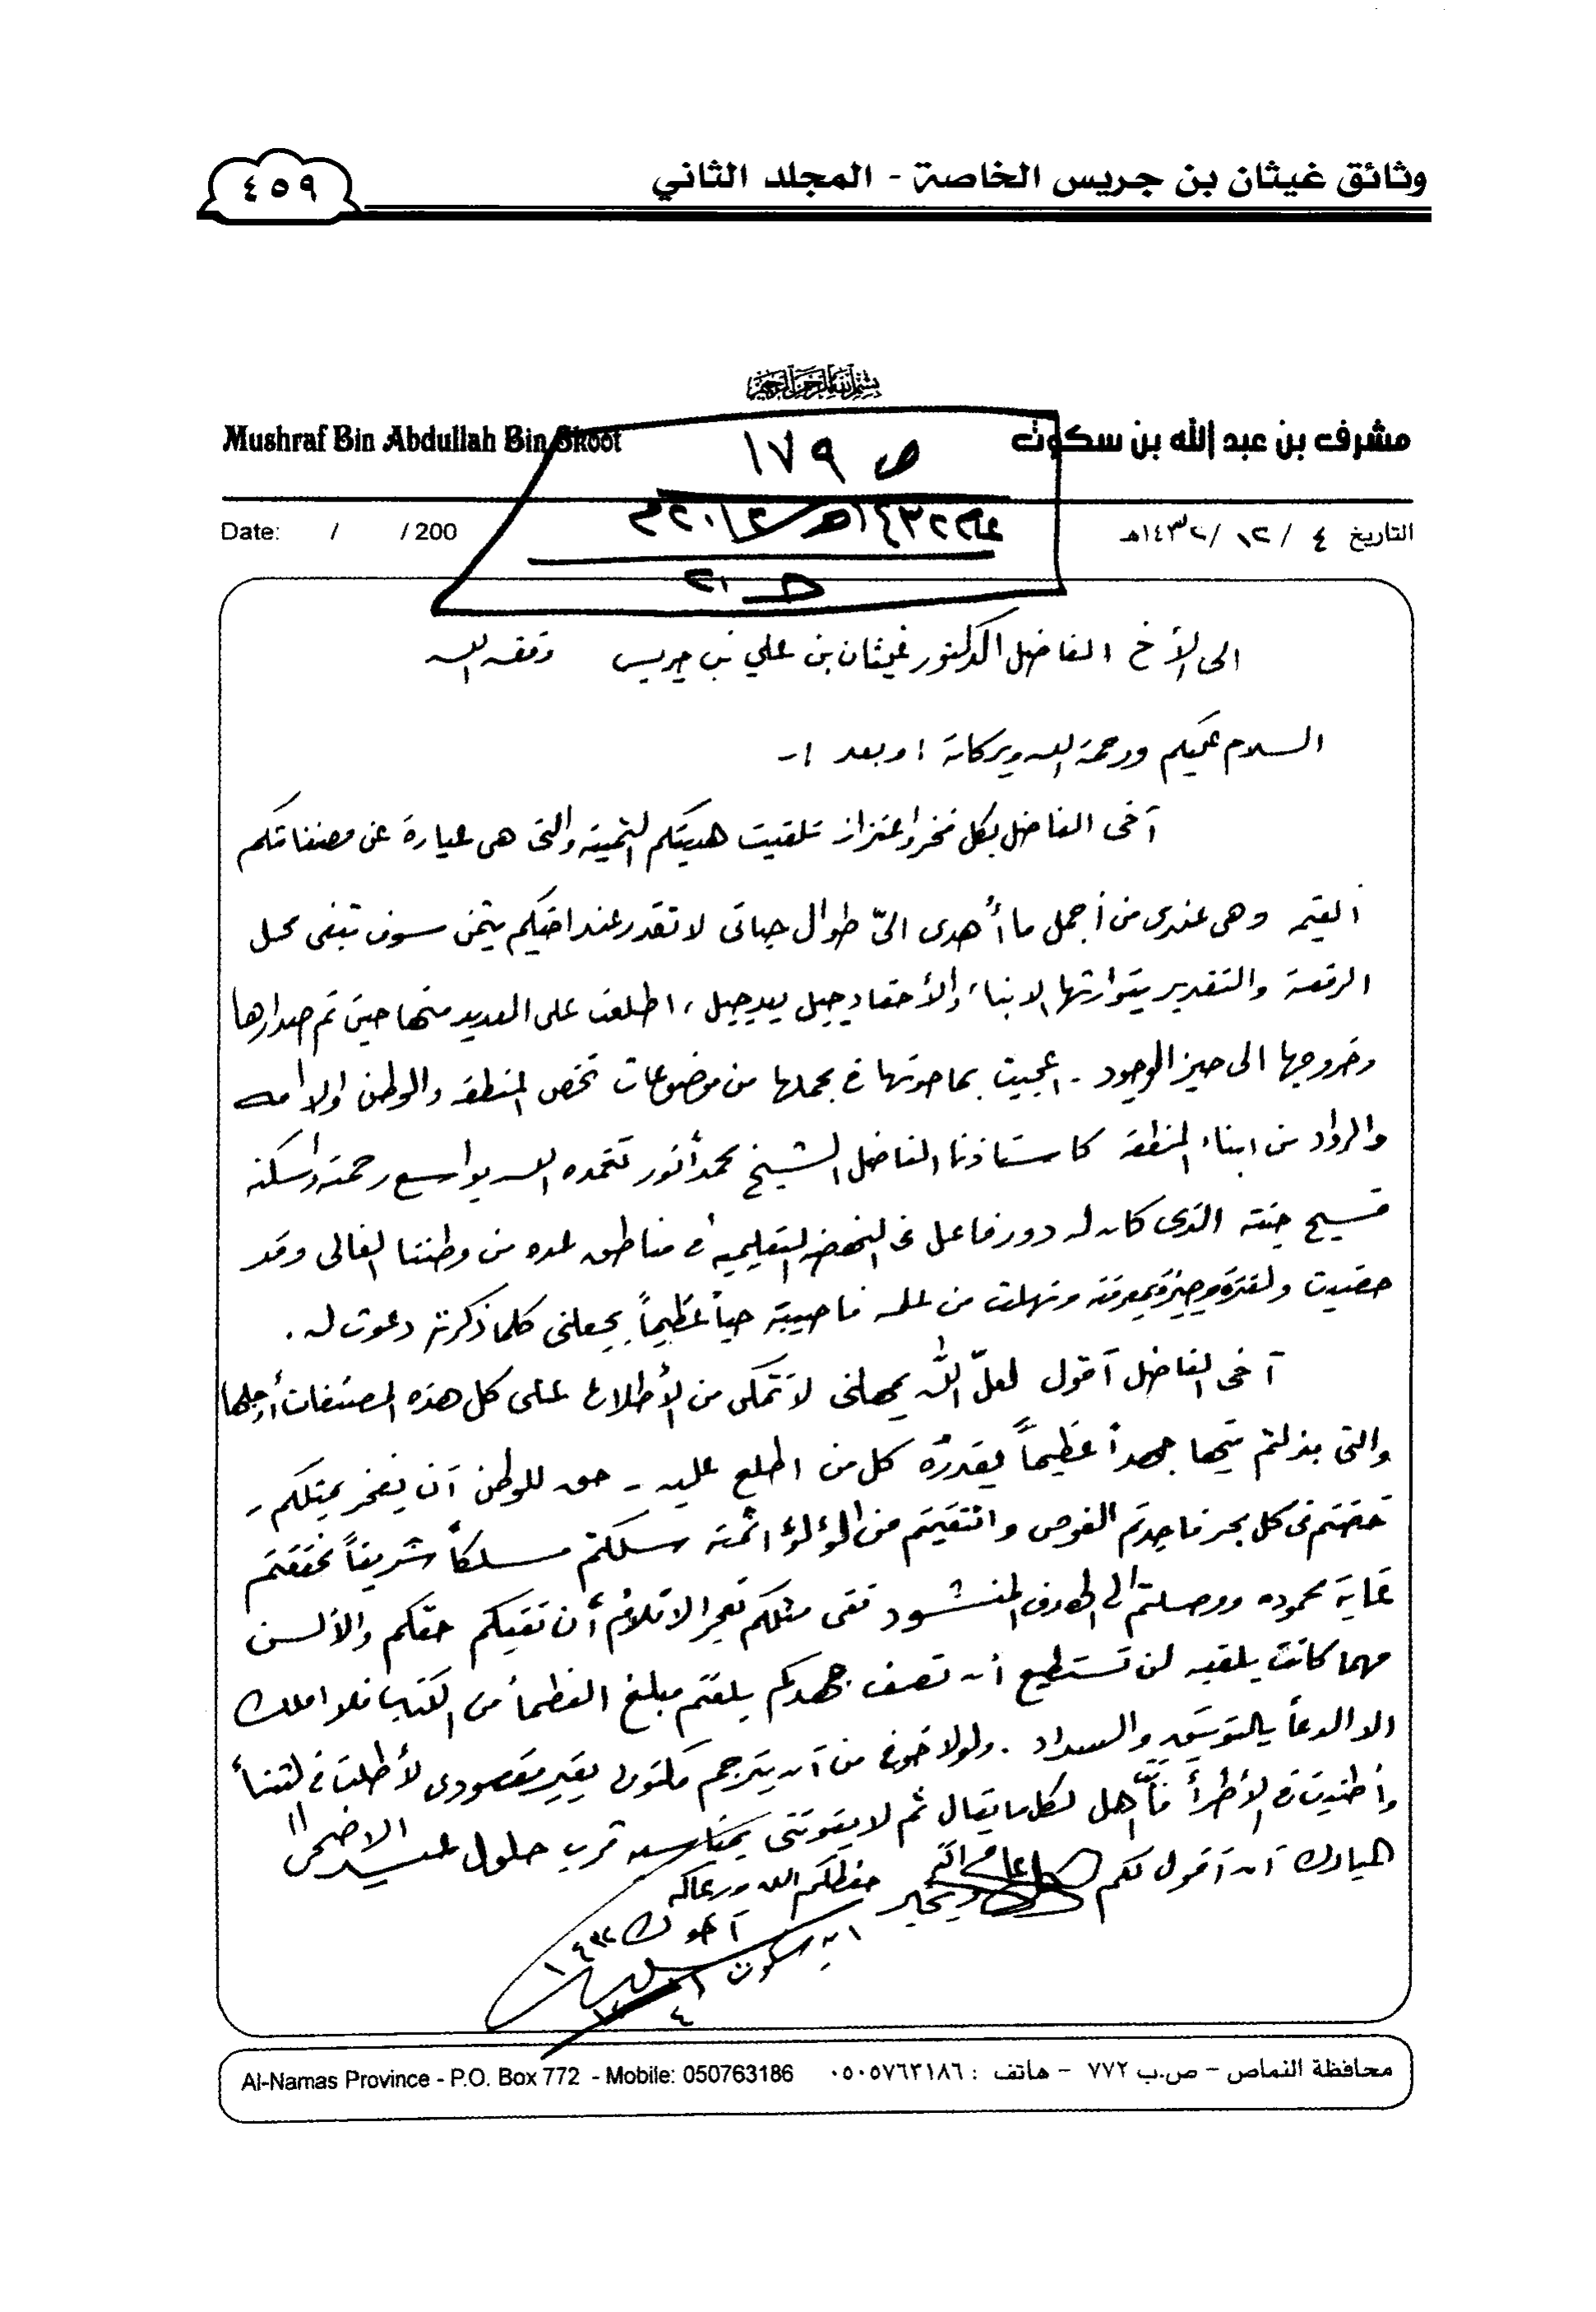 وثائق غيثان بن جريس الخاصة - المجلد الثاني
٤٥٩
بسم الله الرحمن الرحيم
مشرف بن عبد الله بن سكوت
Mushraf Bin Abdullah Bin Skoot
ص ١٧٩
التاريخ ٤ / ١٢ / ١٤٣٢هـ
Date: / /200
الى الأخ الفاضل الدكتور غيثان بن علي بن جريس وفقه الله
السلام عليكم ورحمة الله وبركاته ، وبعد :-
أخي الفاضل بكل فخر واعتزاز تلقيت هديتكم الثمينة والتي هي عبارة عن مصنفاتكم
القيمه وهي عندي من أجمل ما أُهدى اليّ طوال حياتي لا تقدر عند اخيكم بثمن سوف تبقى محل
الرفعة والتقدير يتوارثها الابناء والأحفاد جيل بعد جيل ، اطلعت على العديد منها حين تم اصدارها
وخروجها الى حيز الوجود . اعجبت بما حوتها في مجملها من موضوعات تخص المنطقه والوطن والامه
والرواد من ابناء المنطقه كاستاذنا الفاضل الشيخ محمد أنور تغمده الله بواسع رحمته واسكنه
فسيح جنته الذي كان له دور فاعل في النهضه التعليميه في مناطق عده من وطننا الغالي وقد
حضيت ولفترة وجيزة بمعرفته ونهلت من علمه فاحببته حباً عظيماً يجعلني كلما ذكرته دعوت له .
أخي الفاضل أقول لعلّ الله يمهلني لأتمكن من الأطلاع على كل هذه المصنفات أو جلها
والتي بذلتم جهداً عظيماً يقدرُه كل من اطلع عليه - حق للوطن أن يفخر بمثلكم -
خضتم في كل بحر فاجدتم الغوص وانتقيتم من الؤلؤ اثمنه سلكتم مسلكاً شريفاً فحققتم
غاية محموده ووصلتم الى الهدف المنشود ففي مثلكم تعجز الاقلام أن تفيكم حقكم والألسن
مهما كانت بليغه لن تستطيع ان تصف جهدكم بلغتم مبلغ العظمأ من الكتاب فلا املك
الا الدعأ بالتوفيق والسداد . ولولا خوفي من أن يترجم مكتوبي بغير مقصودي لأطلت في الثنأ
وأطنبت في الأطرأ فأنتم أهل لكل ما يقال ثم لا يفوتني بمناسبة قرب حلول عيد الاضحى
المبارك أن أقول لكم كل عام وأنتم بخير حفظكم الله ورعاكم
أخوك
ابن سكوت
محافظة النماص - ص.ب ٧٧٢ - هاتف : ٠٥٠٥٧٦٣١٨٦
Al-Namas Province - P.O. Box 772 - Mobile: 050763186